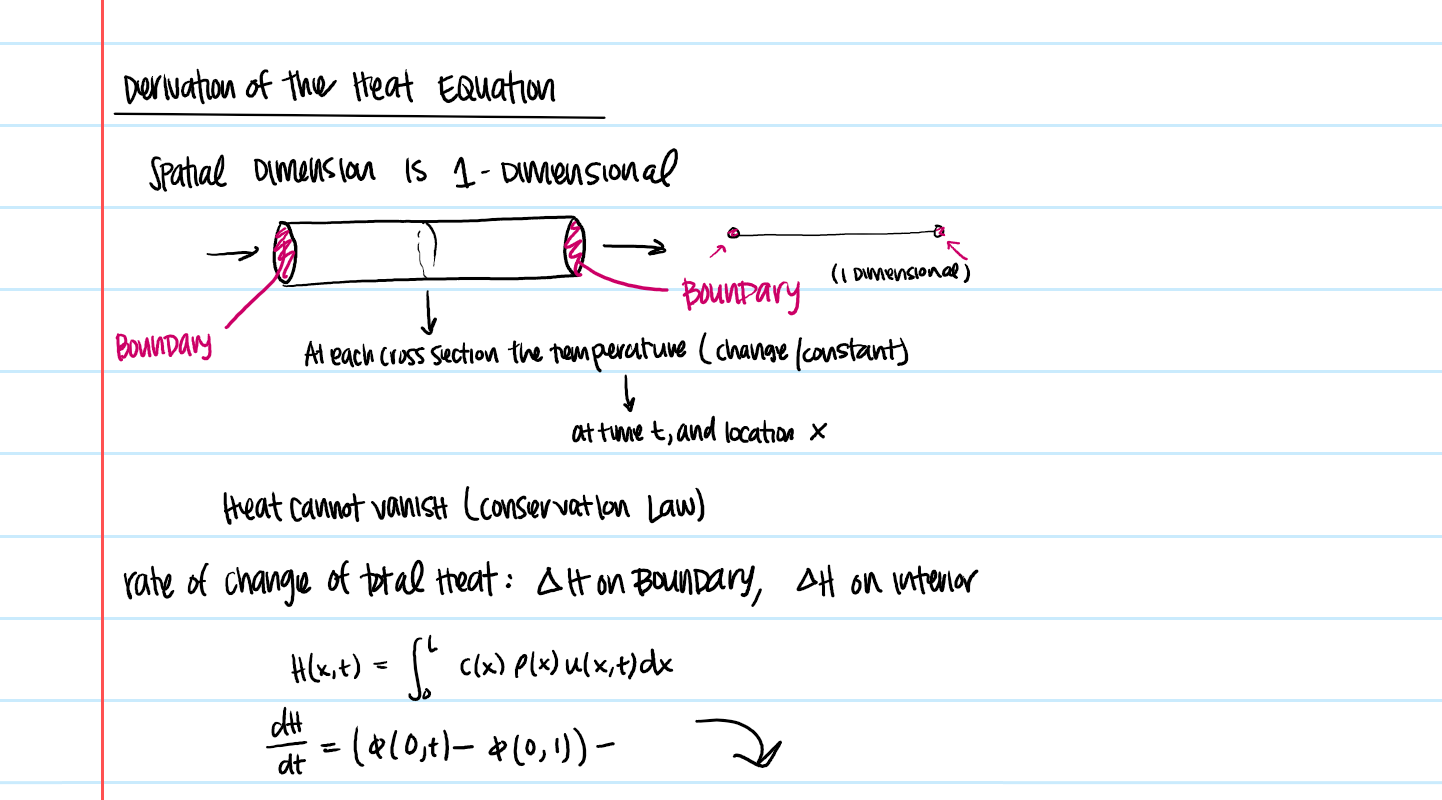 Derivation of the Heat Equation
Spatial Dimension is 1-Dimensional
Boundary
Boundary
(1 Dimensional)
At each cross section the temperature (change/constant)
at time t, and location x
Heat cannot vanish (conservation Law)
rate of change of total Heat: ΔH on Boundary, ΔH on interior
H(x,t) = ∫₀ᴸ c(x) ρ(x) u(x,t) dx
dH/dt = (φ(0,t) − φ(0,1)) −